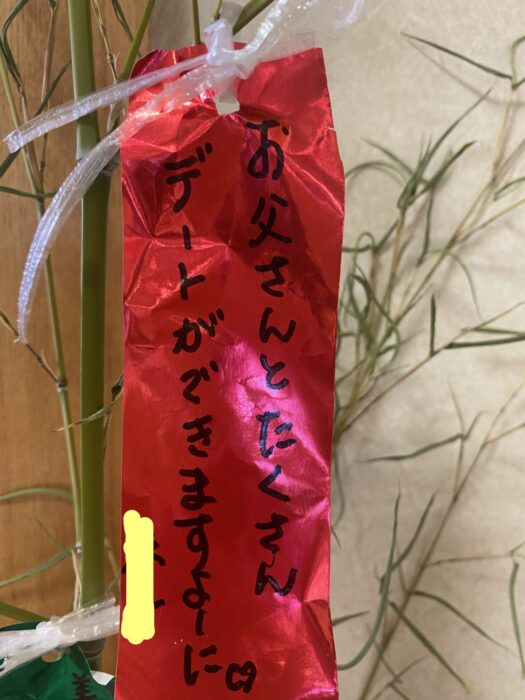 お父さんとたくさん
デートができますよーに♡